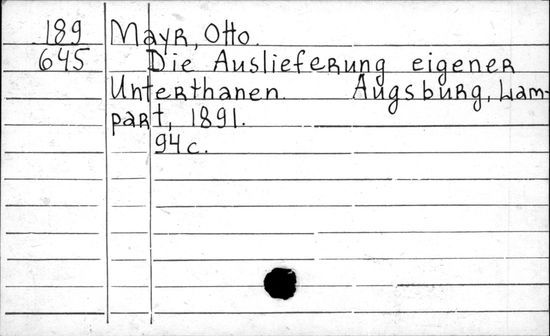 189 Mayr, Otto.
645 Die Auslieferung eigener
Unterthanen. Augsburg, Lam-
part, 1891.
94 c.